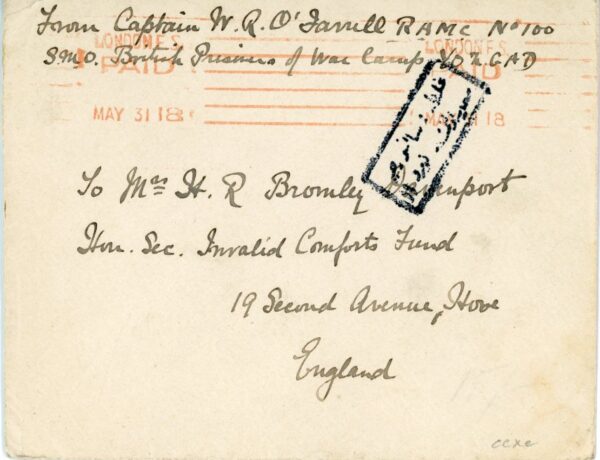 From Captain W. R. O'Farrell RAMC No 100
LONDON F.S.
PAID
LONDON F.S.
PAID
S.M.O. British Prisoners of War Camp YOZGAD
MAY 31 18
MAY 31 18
To Mrs H. R Bromley Davenport
Hon. Sec. Invalid Comforts Fund
19 Second Avenue, Hove
England